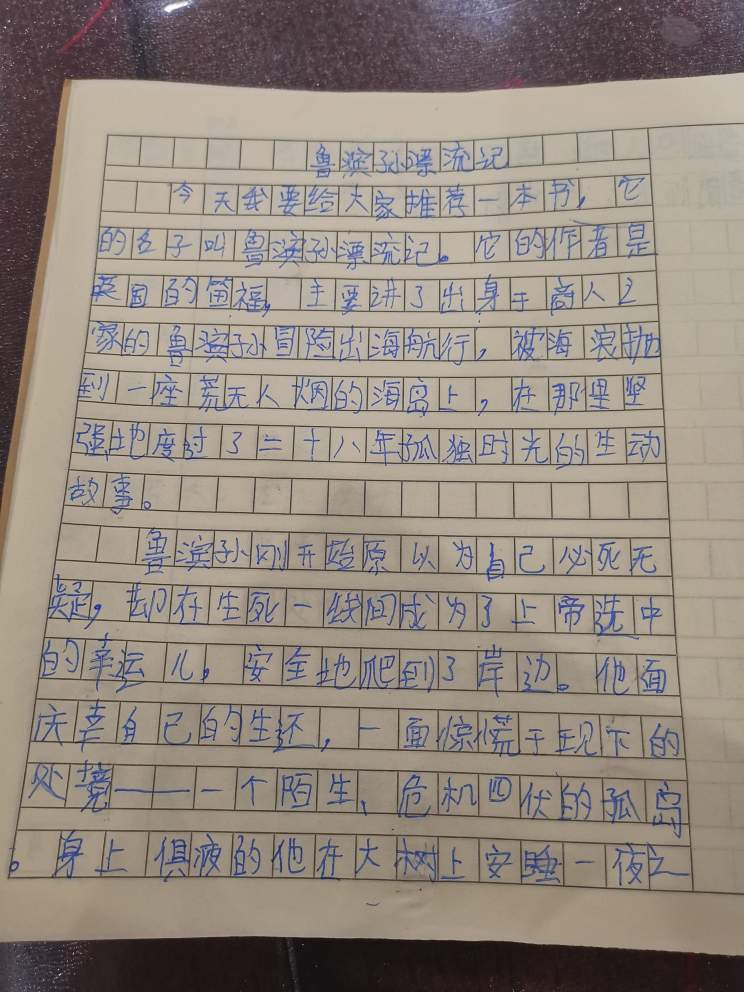 鲁滨孙漂流记
今天我要给大家推荐一本书，它
的名子叫鲁滨孙漂流记。它的作者是
英国的笛福，主要讲了出身于商人之
家的鲁滨孙冒险出海航行，被海浪抛
到一座荒无人烟的海岛上，在那里坚
强地度过了二十八年孤独时光的生动
故事。
鲁滨孙刚开始原以为自己必死无
疑，却在生死一线间成为了上帝选中
的幸运儿，安全地爬到了岸边。他面
庆幸自己的生还，一面惊慌于现下的
处境——一个陌生、危机四伏的孤岛
。身上俱疲的他在大树上安睡一夜之